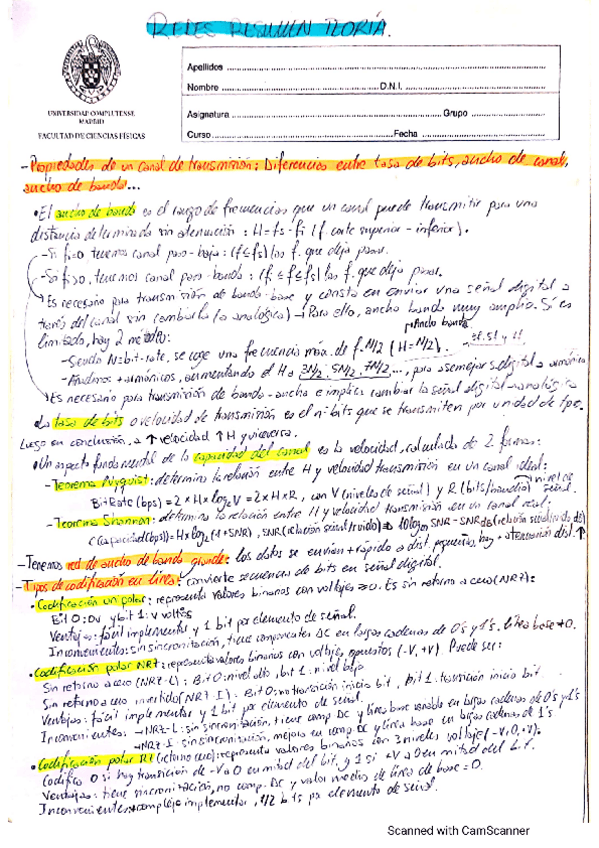 REDES RESUMEN TEORÍA.
UNIVERSIDAD COMPLUTENSE
MADRID
FACULTAD DE CIENCIAS FÍSICAS
Apellidos
Nombre D.N.I.
Asignatura Grupo
Curso Fecha
- Propiedades de un canal de transmisión: Diferencias entre tasa de bits, ancho de canal,
ancho de banda...
• El ancho de banda es el rango de frecuencias que un canal puede transmitir para una
distancia determinada sin atenuación: H = fs - fi (f. corte superior - inferior).
- Si fi=0 tenemos canal paso-bajo: (f≤fs) las f. que deja pasar.
- Si fi>0, tenemos canal paso-banda: (fi ≤ f ≤ fs) las f. que deja pasar.
Es necesario para transmisión de banda-base y consta en enviar una señal digital a
través del canal sin cambiarla (a analógica) → Para ello, ancho banda muy amplio. Si es
limitado, hay 2 métodos:
Ancho banda
- Siendo N=bit-rate, se coge una frecuencia máx. de f=N/2 (H=N/2).
- Añadimos + armónicos, aumentando el H a 3N/2, 5N/2, 7N/2..., para asemejar s.digital a armónico
Es necesario para transmisión de banda-ancha e implica cambiar la señal digital-analógica
• La tasa de bits o velocidad de transmisión es el nº bits que se transmiten por unidad de tpo.
Luego en conclusión, a ↑ velocidad ↑ H y viceversa.
• Un aspecto fundamental de la capacidad del canal es la velocidad, calculado de 2 formas:
- Teorema Nyquist: determina la relación entre H y velocidad transmisión en un canal ideal:
BitRate (bps) = 2×H×log₂V = 2×H×R, con V (niveles de señal) y R (bits/baudio) nivel de señal.
- Teorema Shannon: determina la relación entre H y velocidad transmisión en un canal real:
C (capacidad(bps)) = H×log₂(1+SNR), SNR (relación señal/ruido) ⇒ 10log₁₀SNR = SNRdB (relación señal/ruido dB)
- Tenemos red de ancho de banda grande: los datos se envían + rápido a dist. pequeñas, hay + atenuación dist. ↑
- Tipos de codificación en línea: convierte secuencias de bits en señal digital.
• Codificación unipolar: representa valores binarios con voltajes ≥0. Es sin retorno a cero (NRZ):
Bit 0: 0v y bit 1: + voltios
Ventajas: fácil implementar y 1 bit por elemento de señal.
Inconvenientes: sin sincronización, tiene componentes DC en largas cadenas de 0's y 1's. Línea base ≠0.
• Codificación polar NRZ: representa valores binarios con voltajes opuestos (-V,+V). Puede ser:
Sin retorno a cero (NRZ-L): Bit 0: nivel alto, bit 1: nivel bajo
Sin retorno a cero invertido (NRZ-I): Bit 0: no transición inicio bit, bit 1: transición inicio bit.
Ventajas: fácil implementar y 1 bit por elemento de señal.
Inconvenientes: → NRZ-L: sin sincronización, tiene comp DC y línea base variable en largas cadenas de 0's y 1's
→ NRZ-I: sin sincronización, mejora en comp DC y línea base en largas cadenas de 1's
• Codificación polar RZ (retorno cero): representa valores binarios con 3 niveles voltaje (-V,0,+V).
Codifica 0 si hay transición de -V a 0 en mitad del bit y 1 si +V a 0 en mitad del bit.
Ventajas: tiene sincronización, no comp. DC y valor medio de línea de base = 0.
Inconvenientes: + complejo implementar, 1/2 bits por elemento de señal.
Scanned with CamScanner